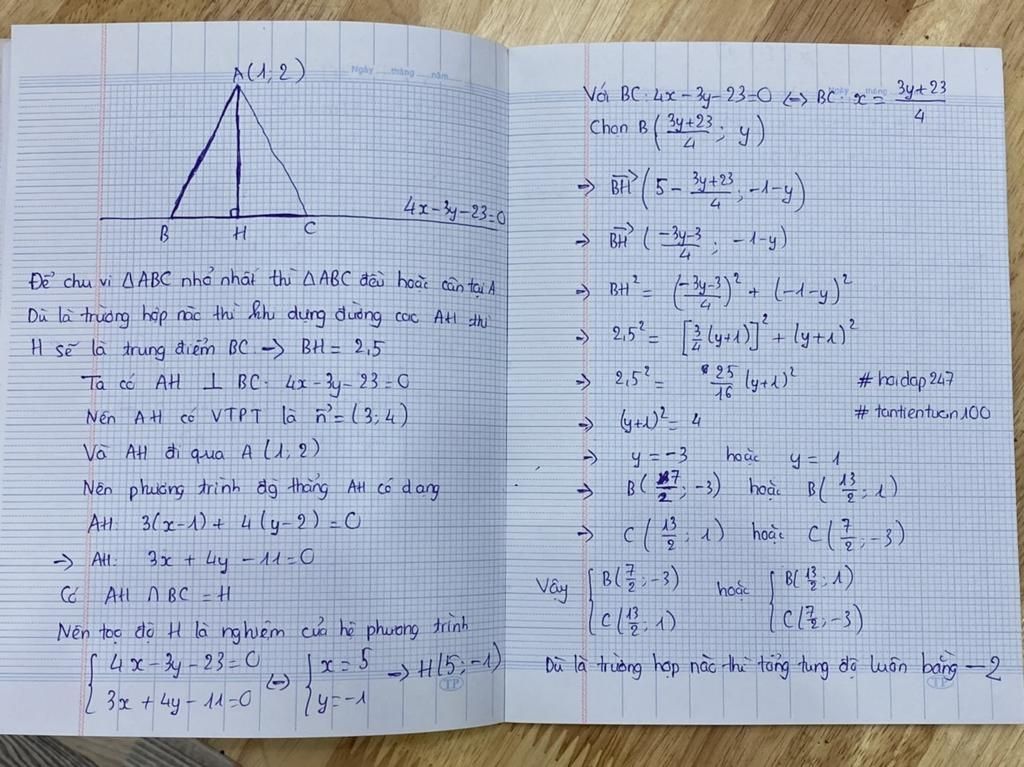 Ngày.....tháng.....năm.....
A(1; 2)
4x-3y-23=0
B H C
Để chu vi ΔABC nhỏ nhất thì ΔABC đều hoặc cân tại A
Dù là trường hợp nào thì khi dựng đường cao AH thì
H sẽ là trung điểm BC → BH = 2,5
Ta có AH ⊥ BC: 4x-3y-23=0
Nên AH có VTPT là n⃗=(3;4)
Và AH đi qua A (1,2)
Nên phương trình đg thẳng AH có dạng
AH: 3(x-1)+ 4(y-2) = 0
→ AH: 3x + 4y - 11 = 0
Có AH ∩ BC = H
Nên toạ độ H là nghiệm của hệ phương trình
{4x-3y-23=0 ⇔ {x=5 → H(5;-1)
{3x+4y-11=0 {y=-1
TP
Với BC: 4x-3y-23=0 ⇔ BC: x = (3y+23)/4
Chọn B((3y+23)/4; y)
→ BH⃗ (5 - (3y+23)/4; -1-y)
→ BH⃗ ((-3y-3)/4; -1-y)
→ BH² = ((-3y-3)/4)² + (-1-y)²
→ 2,5² = [3/4(y+1)]² + (y+1)²
→ 2,5² = 25/16 (y+1)² #hoidap247
→ (y+1)² = 4 #tantientuan100
→ y = -3 hoặc y = 1
→ B(7/2; -3) hoặc B(13/2; 1)
→ C(13/2; 1) hoặc C(7/2; -3)
Vậy {B(7/2; -3) hoặc {B(13/2; 1)
{C(13/2; 1) {C(7/2; -3)
Dù là trường hợp nào thì tổng tung độ luôn bằng -2
TP